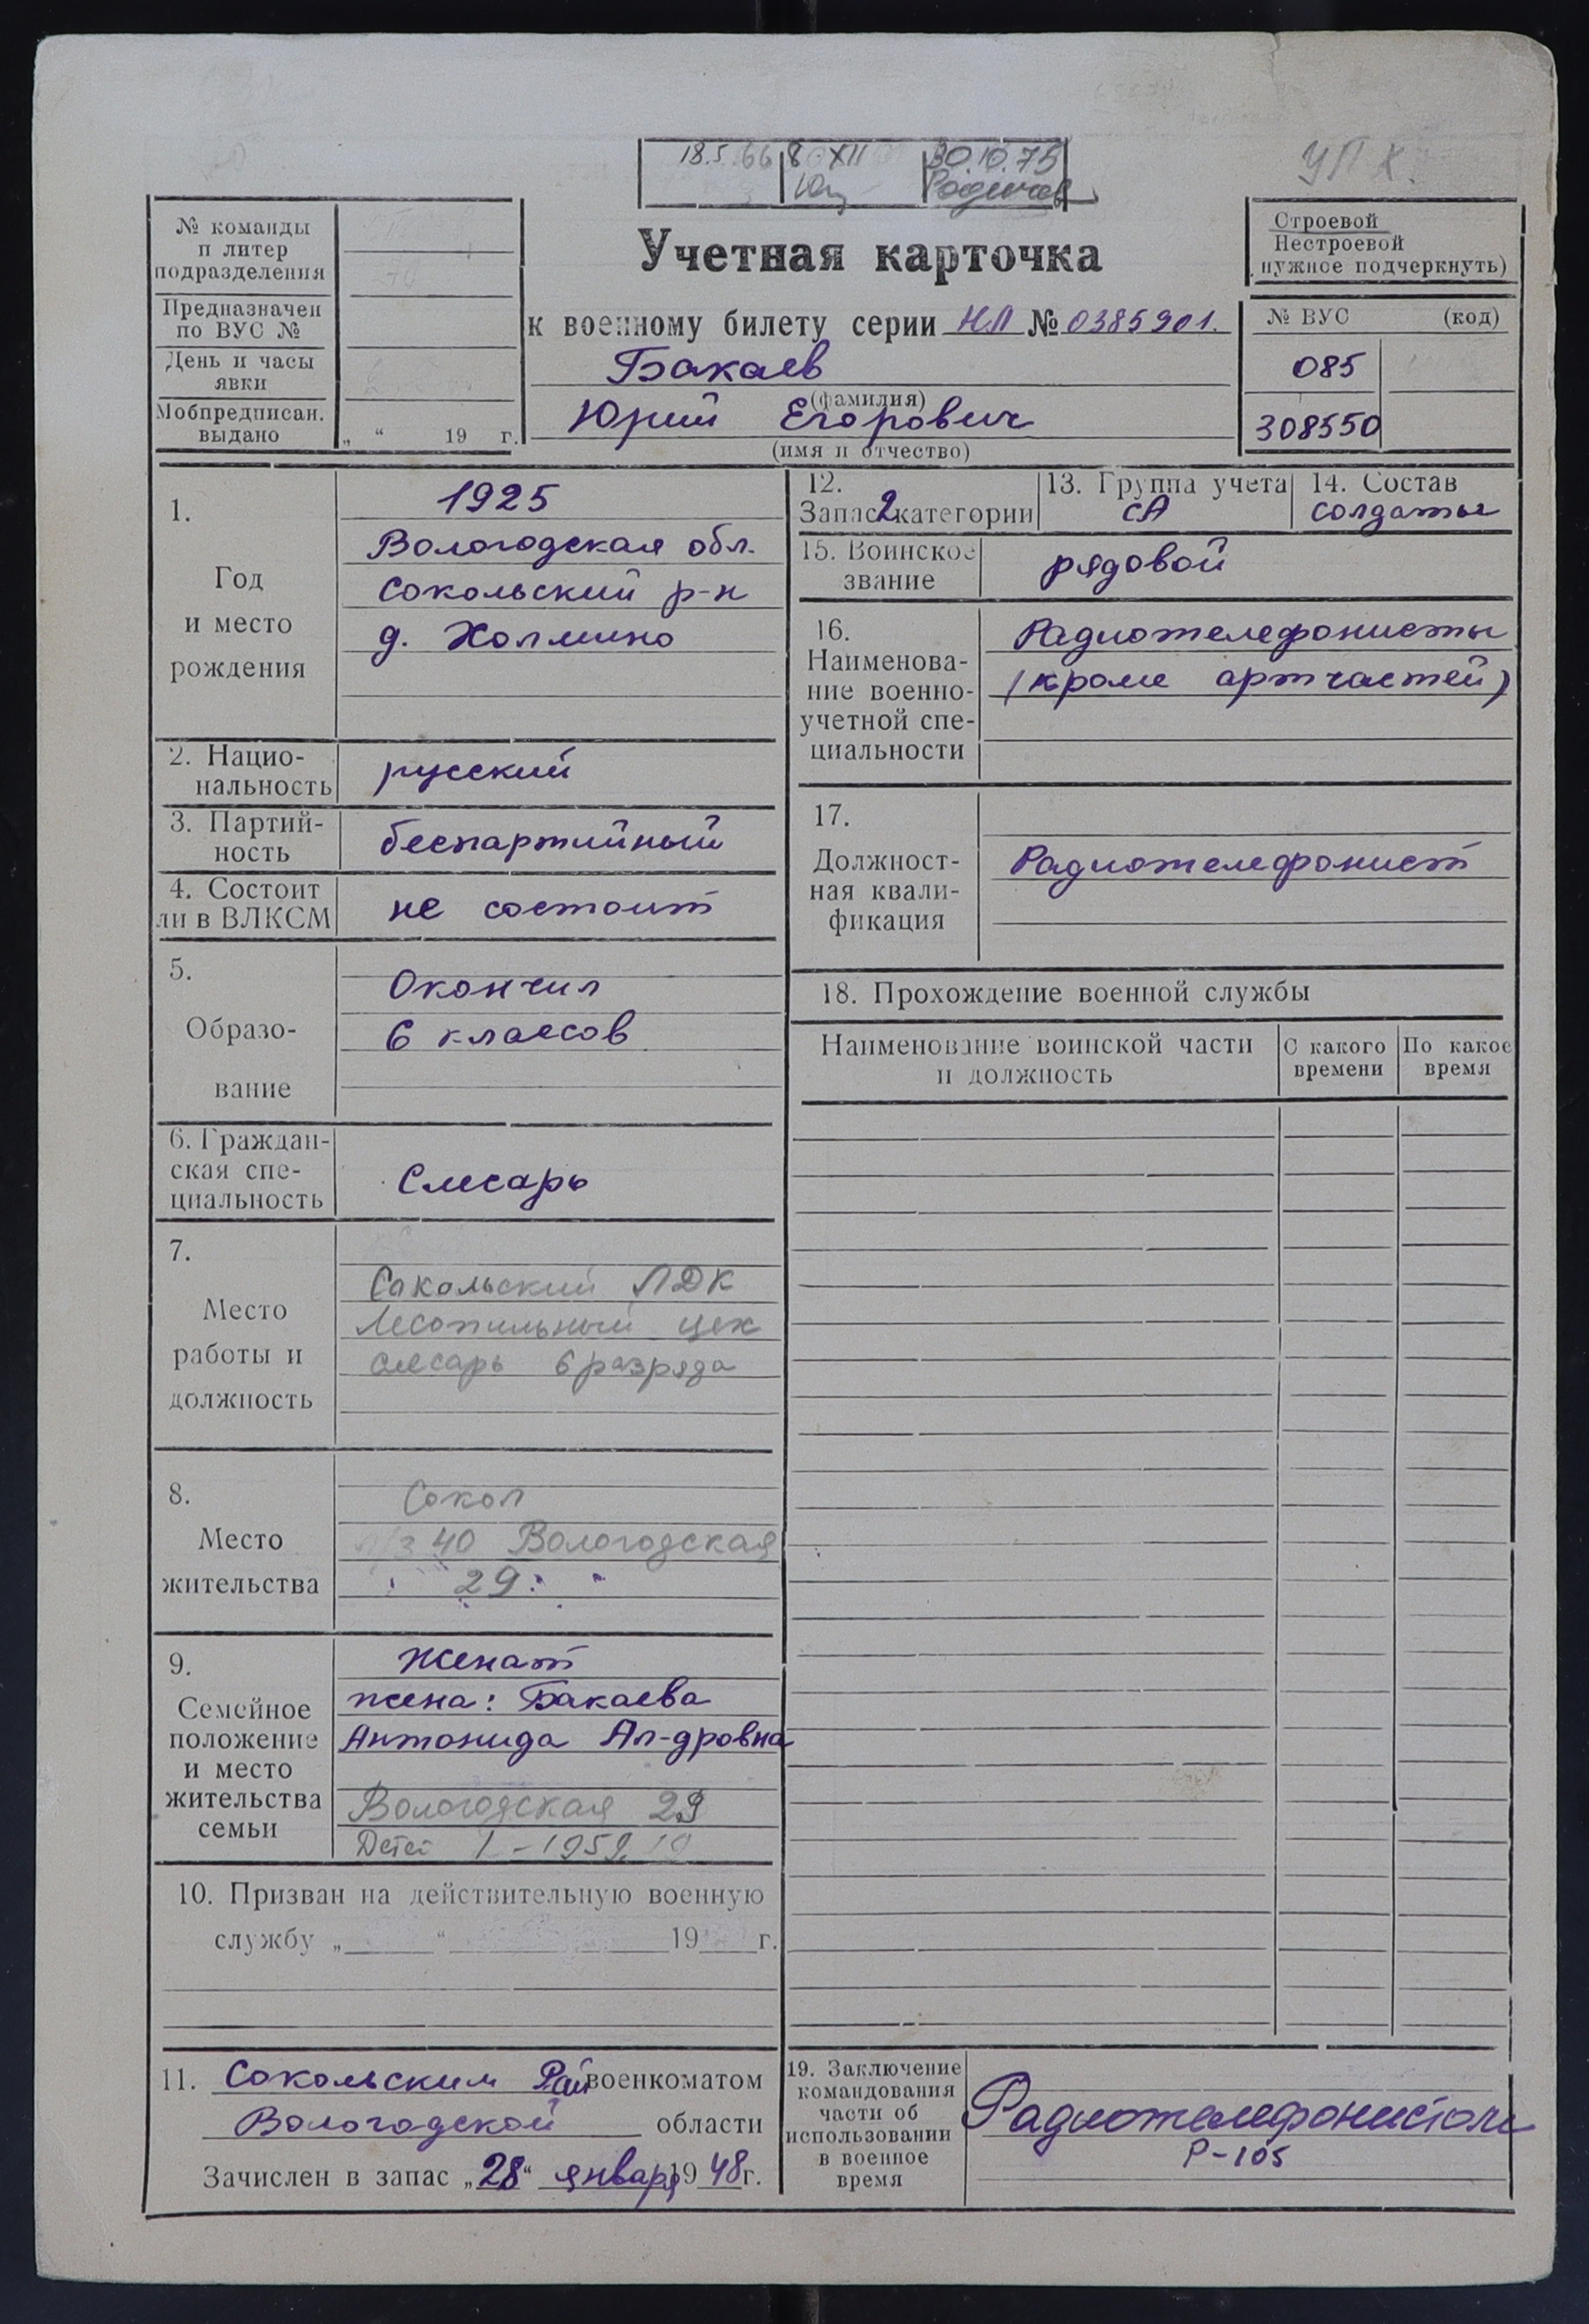 18.5.66 8 XII 30.10.75
Родичев
УПК.
№ команды
п литер
подразделения
Предназначен
по ВУС №
День и часы
явки
Мобпредписан.
выдано
„ “ 19 г.
Учетная карточка
к военному билету серии НЛ № 0385901.
Бакаев
(фамилия)
Юрий Егорович
(имя и отчество)
Строевой
Нестроевой
нужное подчеркнуть)
№ ВУС (код)
085
308550
1.
Год
и место
рождения
1925
Вологодская обл.
Сокольский р-н
д. Холмино
2. Нацио-
нальность
русский
3. Партий-
ность
беспартийный
4. Состоит
ли в ВЛКСМ
не состоит
5.
Образо-
вание
Окончил
6 классов
6. Граждан-
ская спе-
циальность
Слесарь
7.
Место
работы и
должность
Сокольский ЛДК
Лесопильный цех
слесарь 6 разряда
8.
Место
жительства
Сокол
40 Вологодская
29
9.
Семейное
положение
и место
жительства
семьи
Женат
жена: Бакаева
Антонида Ал-дровна
Вологодская 29
Детей 1 - 1959
10. Призван на действительную военную
службу „ “ 19 г.
11. Сокольским Райвоенкоматом
Вологодской области
Зачислен в запас „28“ января 1948 г.
12.
Запас 2 категории
13. Группа учета
СА
14. Состав
солдаты
15. Воинское
звание
рядовой
16.
Наименова-
ние военно-
учетной спе-
циальности
Радиотелефонисты
(кроме артчастей)
17.
Должност-
ная квали-
фикация
Радиотелефонист
18. Прохождение военной службы
Наименование воинской части
и должность
С какого
времени
По какое
время
19. Заключение
командования
части об
использовании
в военное
время
Радиотелефонистом
Р-105